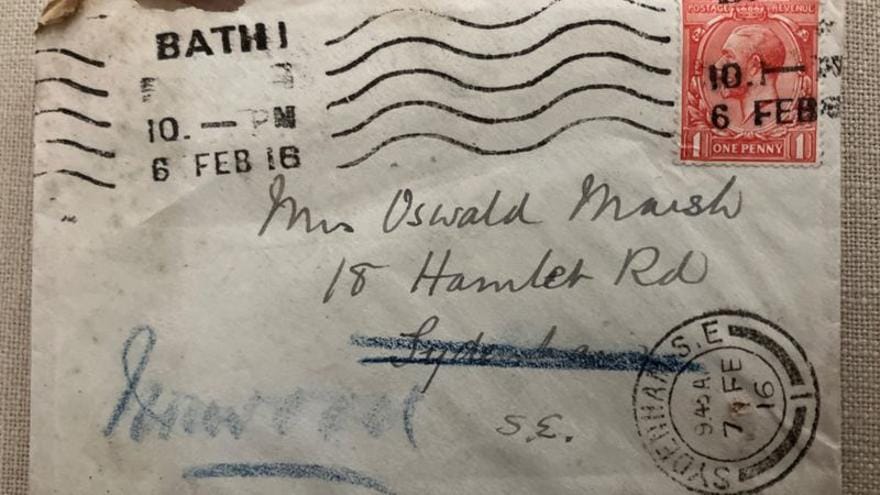 BATH 1
10. — PM
6 FEB 16
POSTAGE REVENUE
10.1—
6 FEB
1 ONE PENNY 1
Mrs Oswald Marsh
18 Hamlet Rd
Sydenham
Norwood
S.E.
SYDENHAM S.E
9.45A
7 FE
16
1